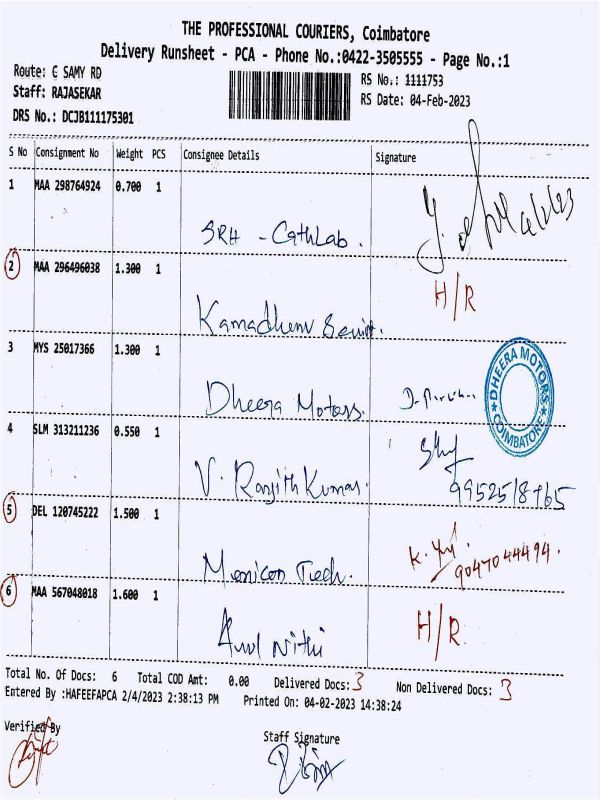 THE PROFESSIONAL COURIERS, Coimbatore
Delivery Runsheet - PCA - Phone No.:0422-3505555 - Page No.:1
Route: G SAMY RD
RS No.: 1111753
Staff: RAJASEKAR
RS Date: 04-Feb-2023
DRS No.: DCJB111175301
S No Consignment No Weight PCS Consignee Details Signature
1 MAA 298764924 0.700 1
SRH - CathLab.
2 MAA 296496038 1.300 1 H/R
Kamadhenu
3 MYS 25017366 1.300 1
Dheera Motors.
DHEERA MOTORS COIMBATORE
4 SLM 313211236 0.550 1
V. Ranjith Kumar.
5 DEL 120745222 1.500 1
9047044494.
6 MAA 567048018 1.600 1 H/R
Arul Nithi
Total No. Of Docs: 6 Total COD Amt: 0.00 Delivered Docs: 3 Non Delivered Docs: 3
Entered By :HAFEEFAPCA 2/4/2023 2:38:13 PM Printed On: 04-02-2023 14:38:24
Verified By
Staff Signature